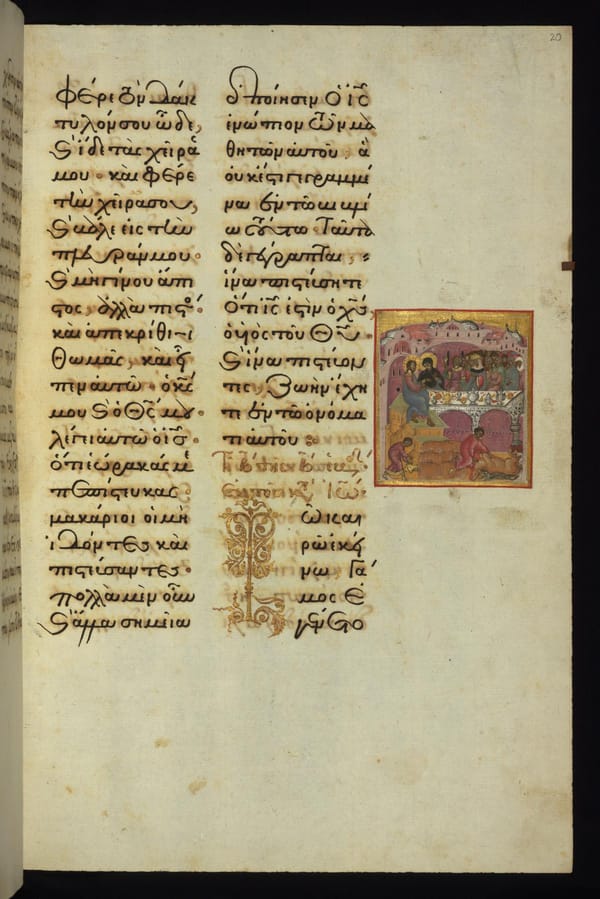 20
φέρε τὸν δάκ
τυλόν σου ὧδε,
καὶ ἴδε τὰς χεῖρά
μου · καὶ φέρε
τὴν χεῖρα σου,
καὶ βάλε εἰς τὴν
πλευράν μου ·
καὶ μὴ γίνου ἄπι
στος, ἀλλὰ πιστός ·
καὶ ἀπεκρίθη ὁ
Θωμᾶς, καὶ εἶ
πεν αὐτῷ · ὁ κς
μου καὶ ὁ θς μου
λέγει αὐτῷ ὁ ις ·
ὅτι ἑώρακάς με
πεπίστευκας ·
μακάριοι οἱ μὴ
ἰδόντες καὶ
πιστεύσαντες ·
πολλὰ μὲν οὖν
καὶ ἄλλα σημεῖα
ἐποίησεν ὁ ις
ἐνώπιον τῶν μα
θητῶν αὐτοῦ · ἃ
οὐκ ἔστι γεγραμμέ
να ἐν τῷ βιβλί
ῳ τούτῳ · ταῦτα
δὲ γέγραπται,
ἵνα πιστεύσητε
ὅτι ις ἐστὶν ὁ χς,
ὁ υἱὸς τοῦ θυ ·
καὶ ἵνα πιστεύον
τες, ζωὴν ἔχη
τε ἐν τῷ ὀνόμα
τι αὐτοῦ :
Τῷ καιρῷ
ρῷ ἐκεί
νῳ Γά
μος ἐ
γένετο